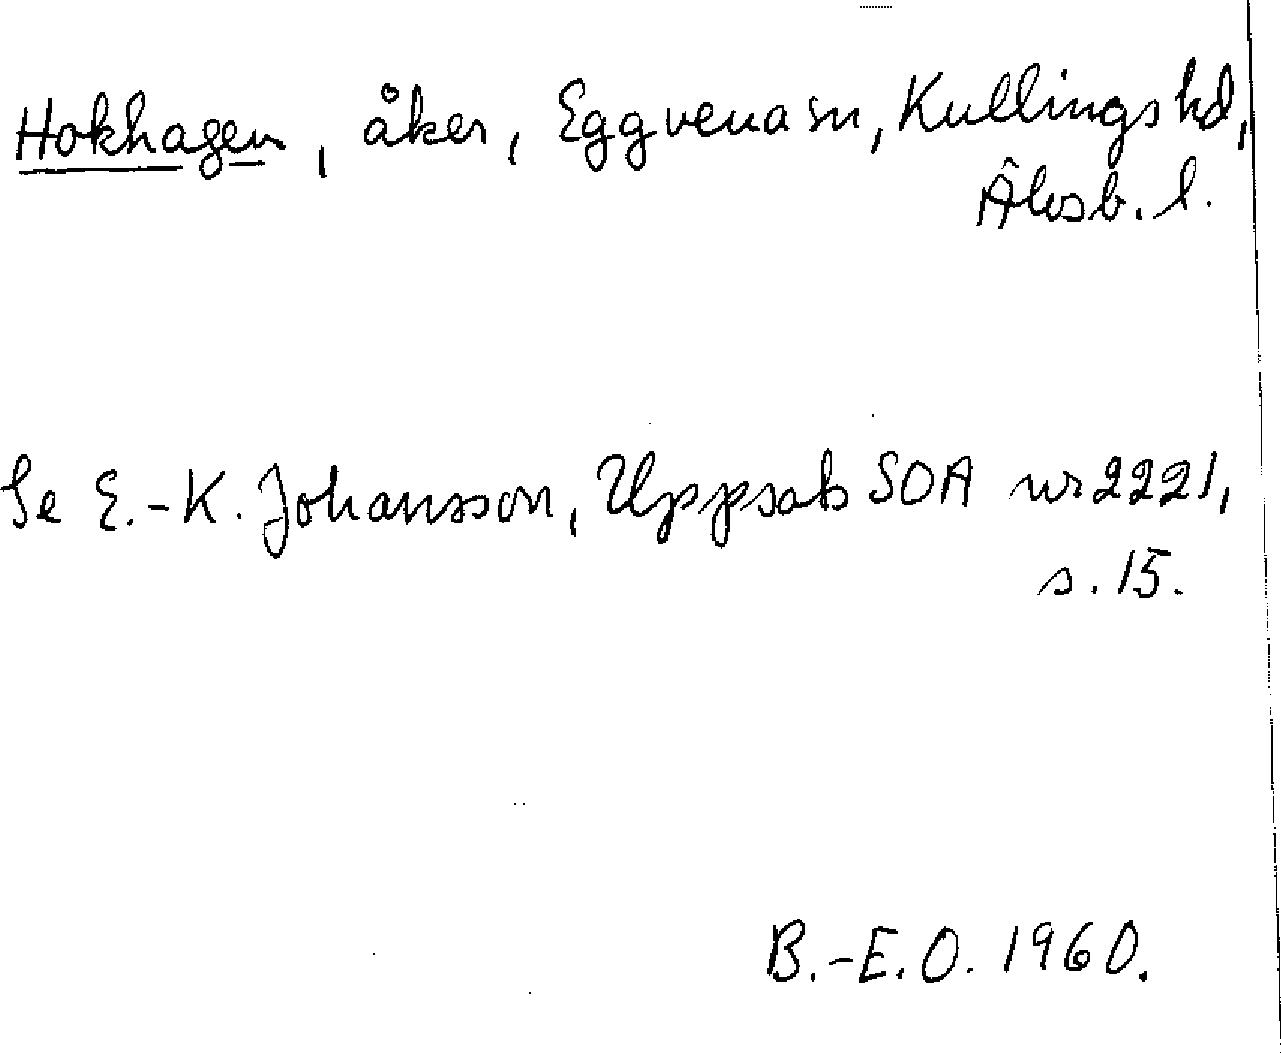 Hokhagen, åker, Eggvena sn, Kullings hd,
Älvsb. l.
Se E.-K. Johansson, Uppsats SOA nr 2221,
s. 15.
B.-E. O. 1960.